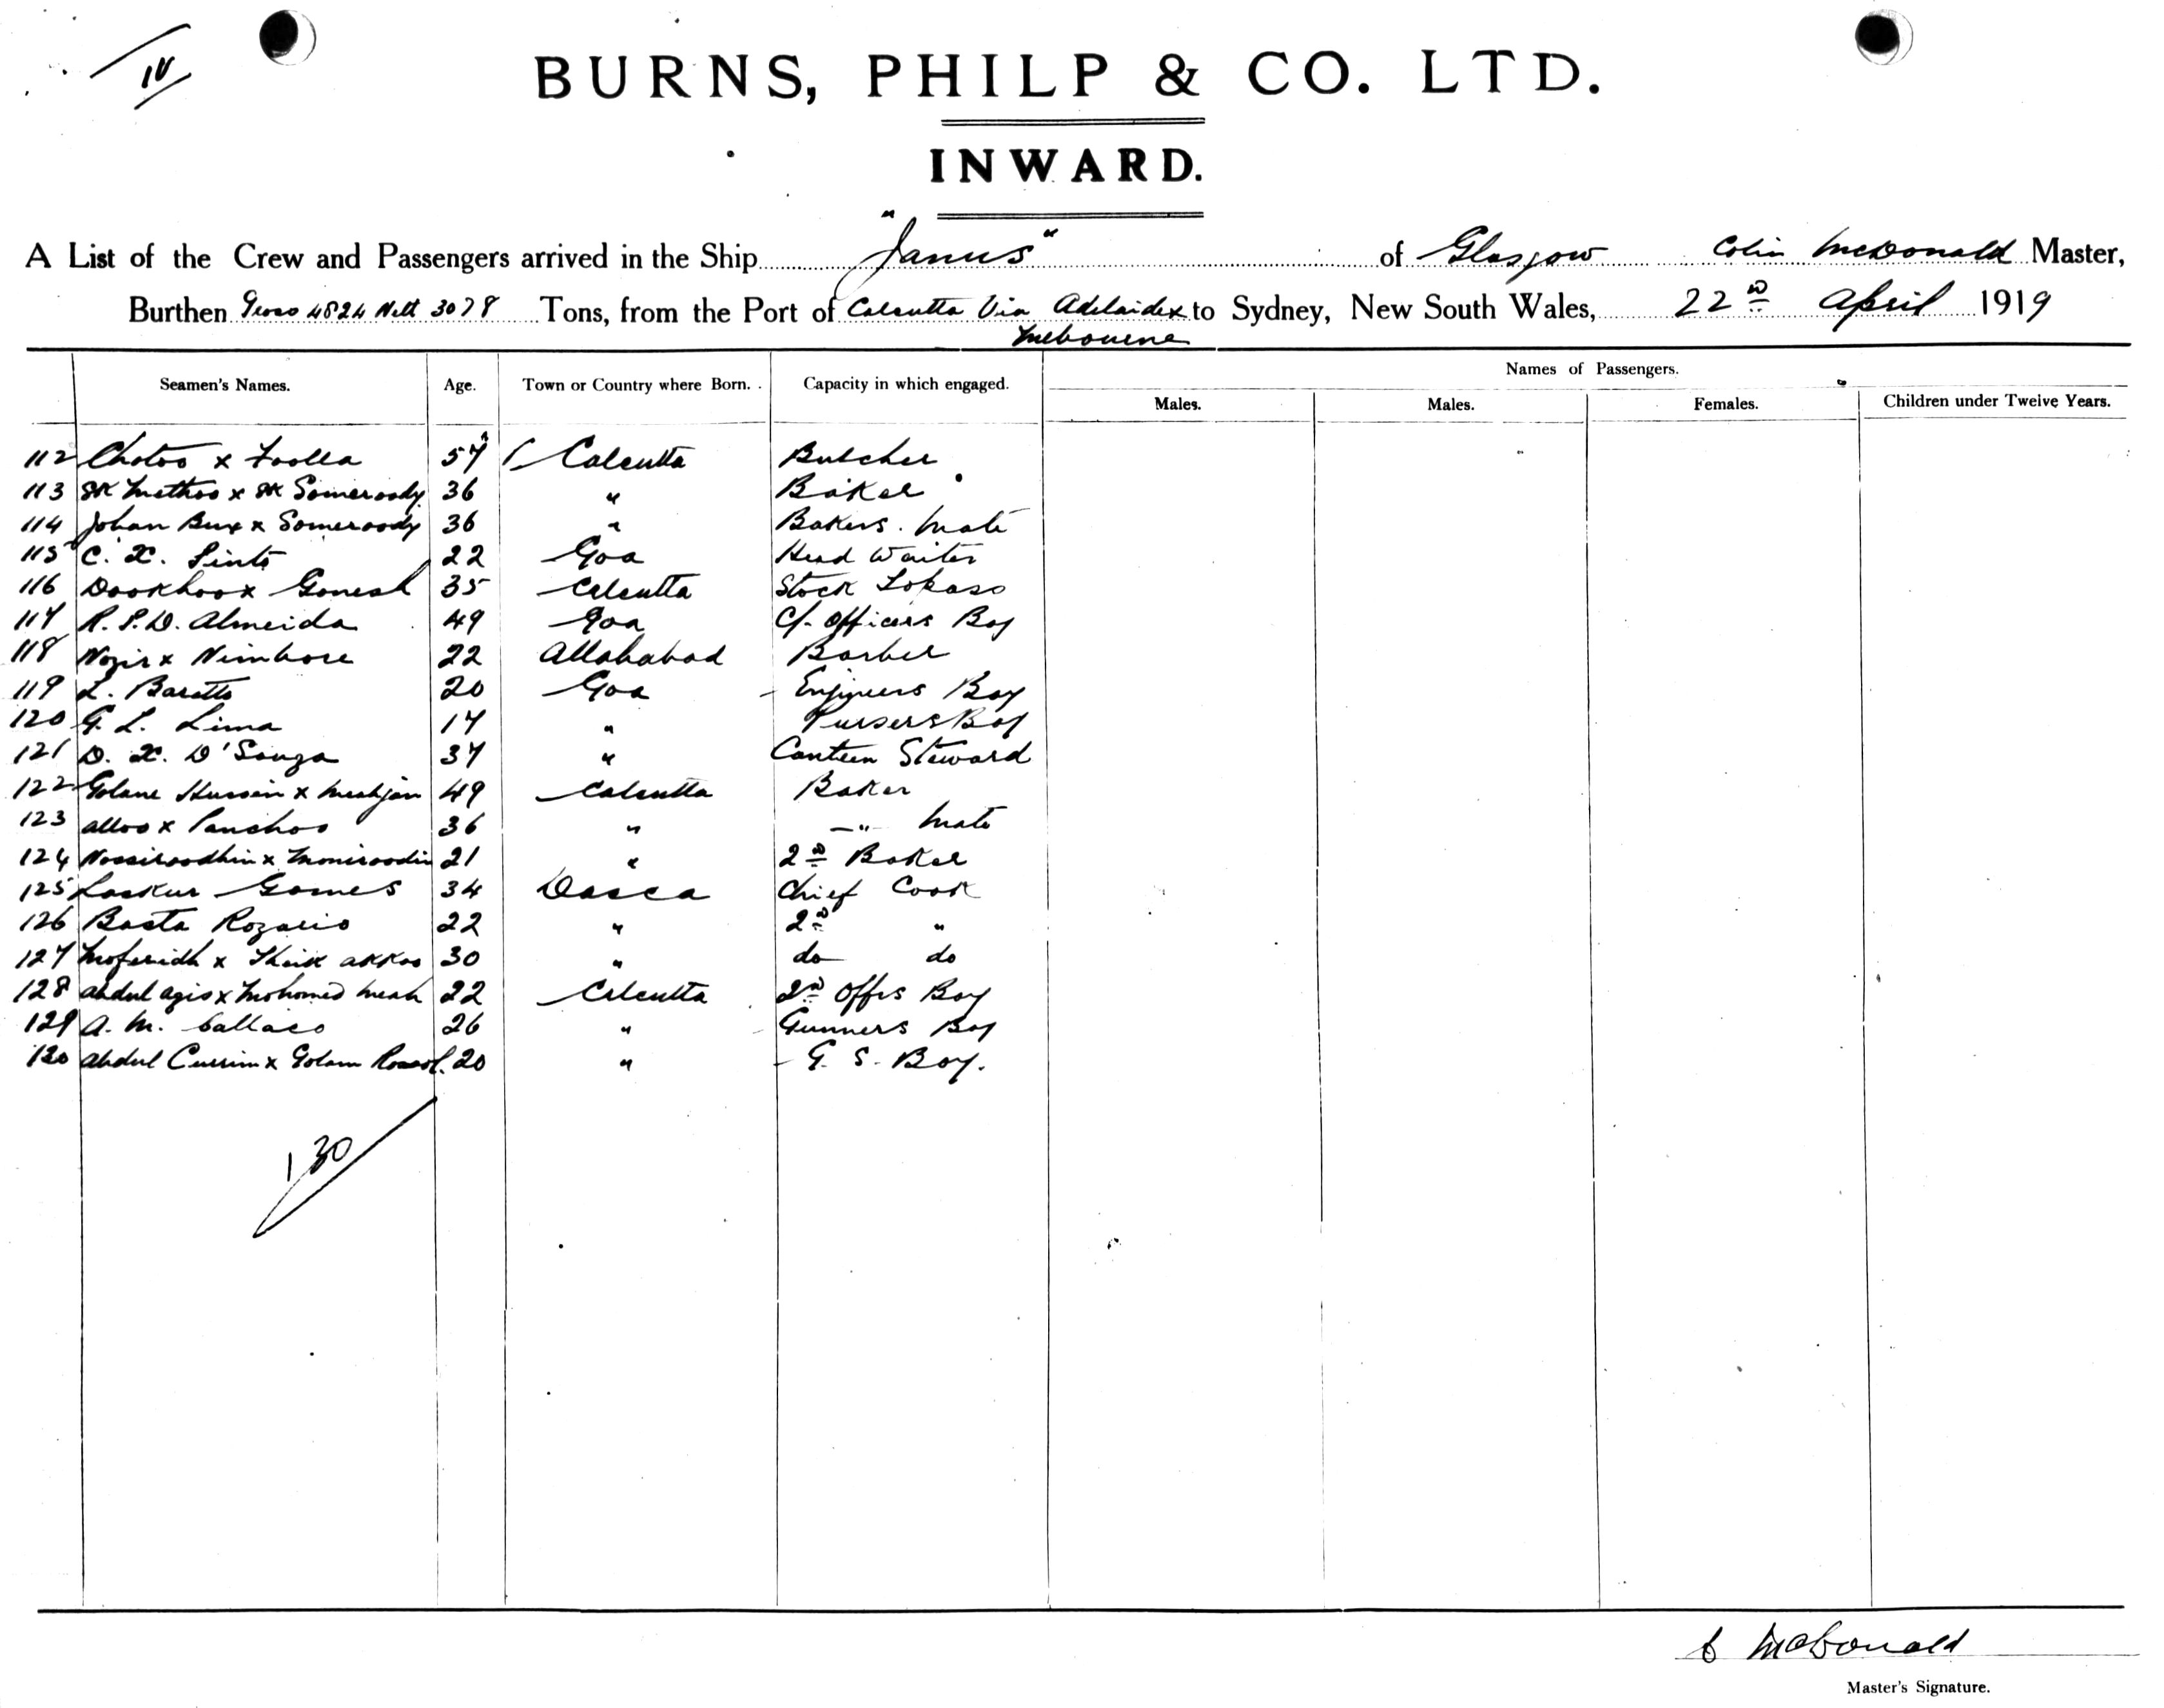 IV
BURNS, PHILP & CO. LTD.
INWARD.
A List of the Crew and Passengers arrived in the Ship "Janus" of Glasgow Colin McDonald Master,
Burthen Gross 4824 Nett 3078 Tons, from the Port of Calcutta Via Adelaide x to Sydney, New South Wales, 22nd April 1919
Melbourne
Names of Passengers.
Seamen's Names. Age. Town or Country where Born. Capacity in which engaged. Males. Males. Females. Children under Twelve Years.
112 Chotoo x Foolla 57 Calcutta Butcher
113 SK Methoo x SK Someroody 36 " Baker
114 Johan Bux x Someroody 36 " Bakers Mate
115 C. X. Pinto 22 Goa Head Waiter
116 Dookhoo x Gonesh 35 Calcutta Stock Topass
117 R. P. D. Almeida 49 Goa C/- Officers Boy
118 Nozir x 22 Allahabad Barber
119 L. Baretto 20 Goa Engineers Boy
120 G. L. Lima 17 " Pursers Boy
121 D. X. D'Souza 37 " Canteen Steward
122 Golam Hussein x Meahjan 49 Calcutta Baker
123 Alloo x Panchoo 36 " " Mate
124 Nossiroodhin x Moniroodin 21 " 2nd Baker
125 Laskur Gomes 34 Dacca Chief Cook
126 Basta Rozario 22 " 2nd "
127 x Sheik Akkoo 30 " do do
128 Abdul Agis x Mohomed Meah 22 Calcutta 2nd Offrs Boy
129 A. M. Callaco 26 " Gunners Boy
130 Abdul Currim x Golam Rosool. 20 " G. S. Boy.
130
C McDonald
Master's Signature.